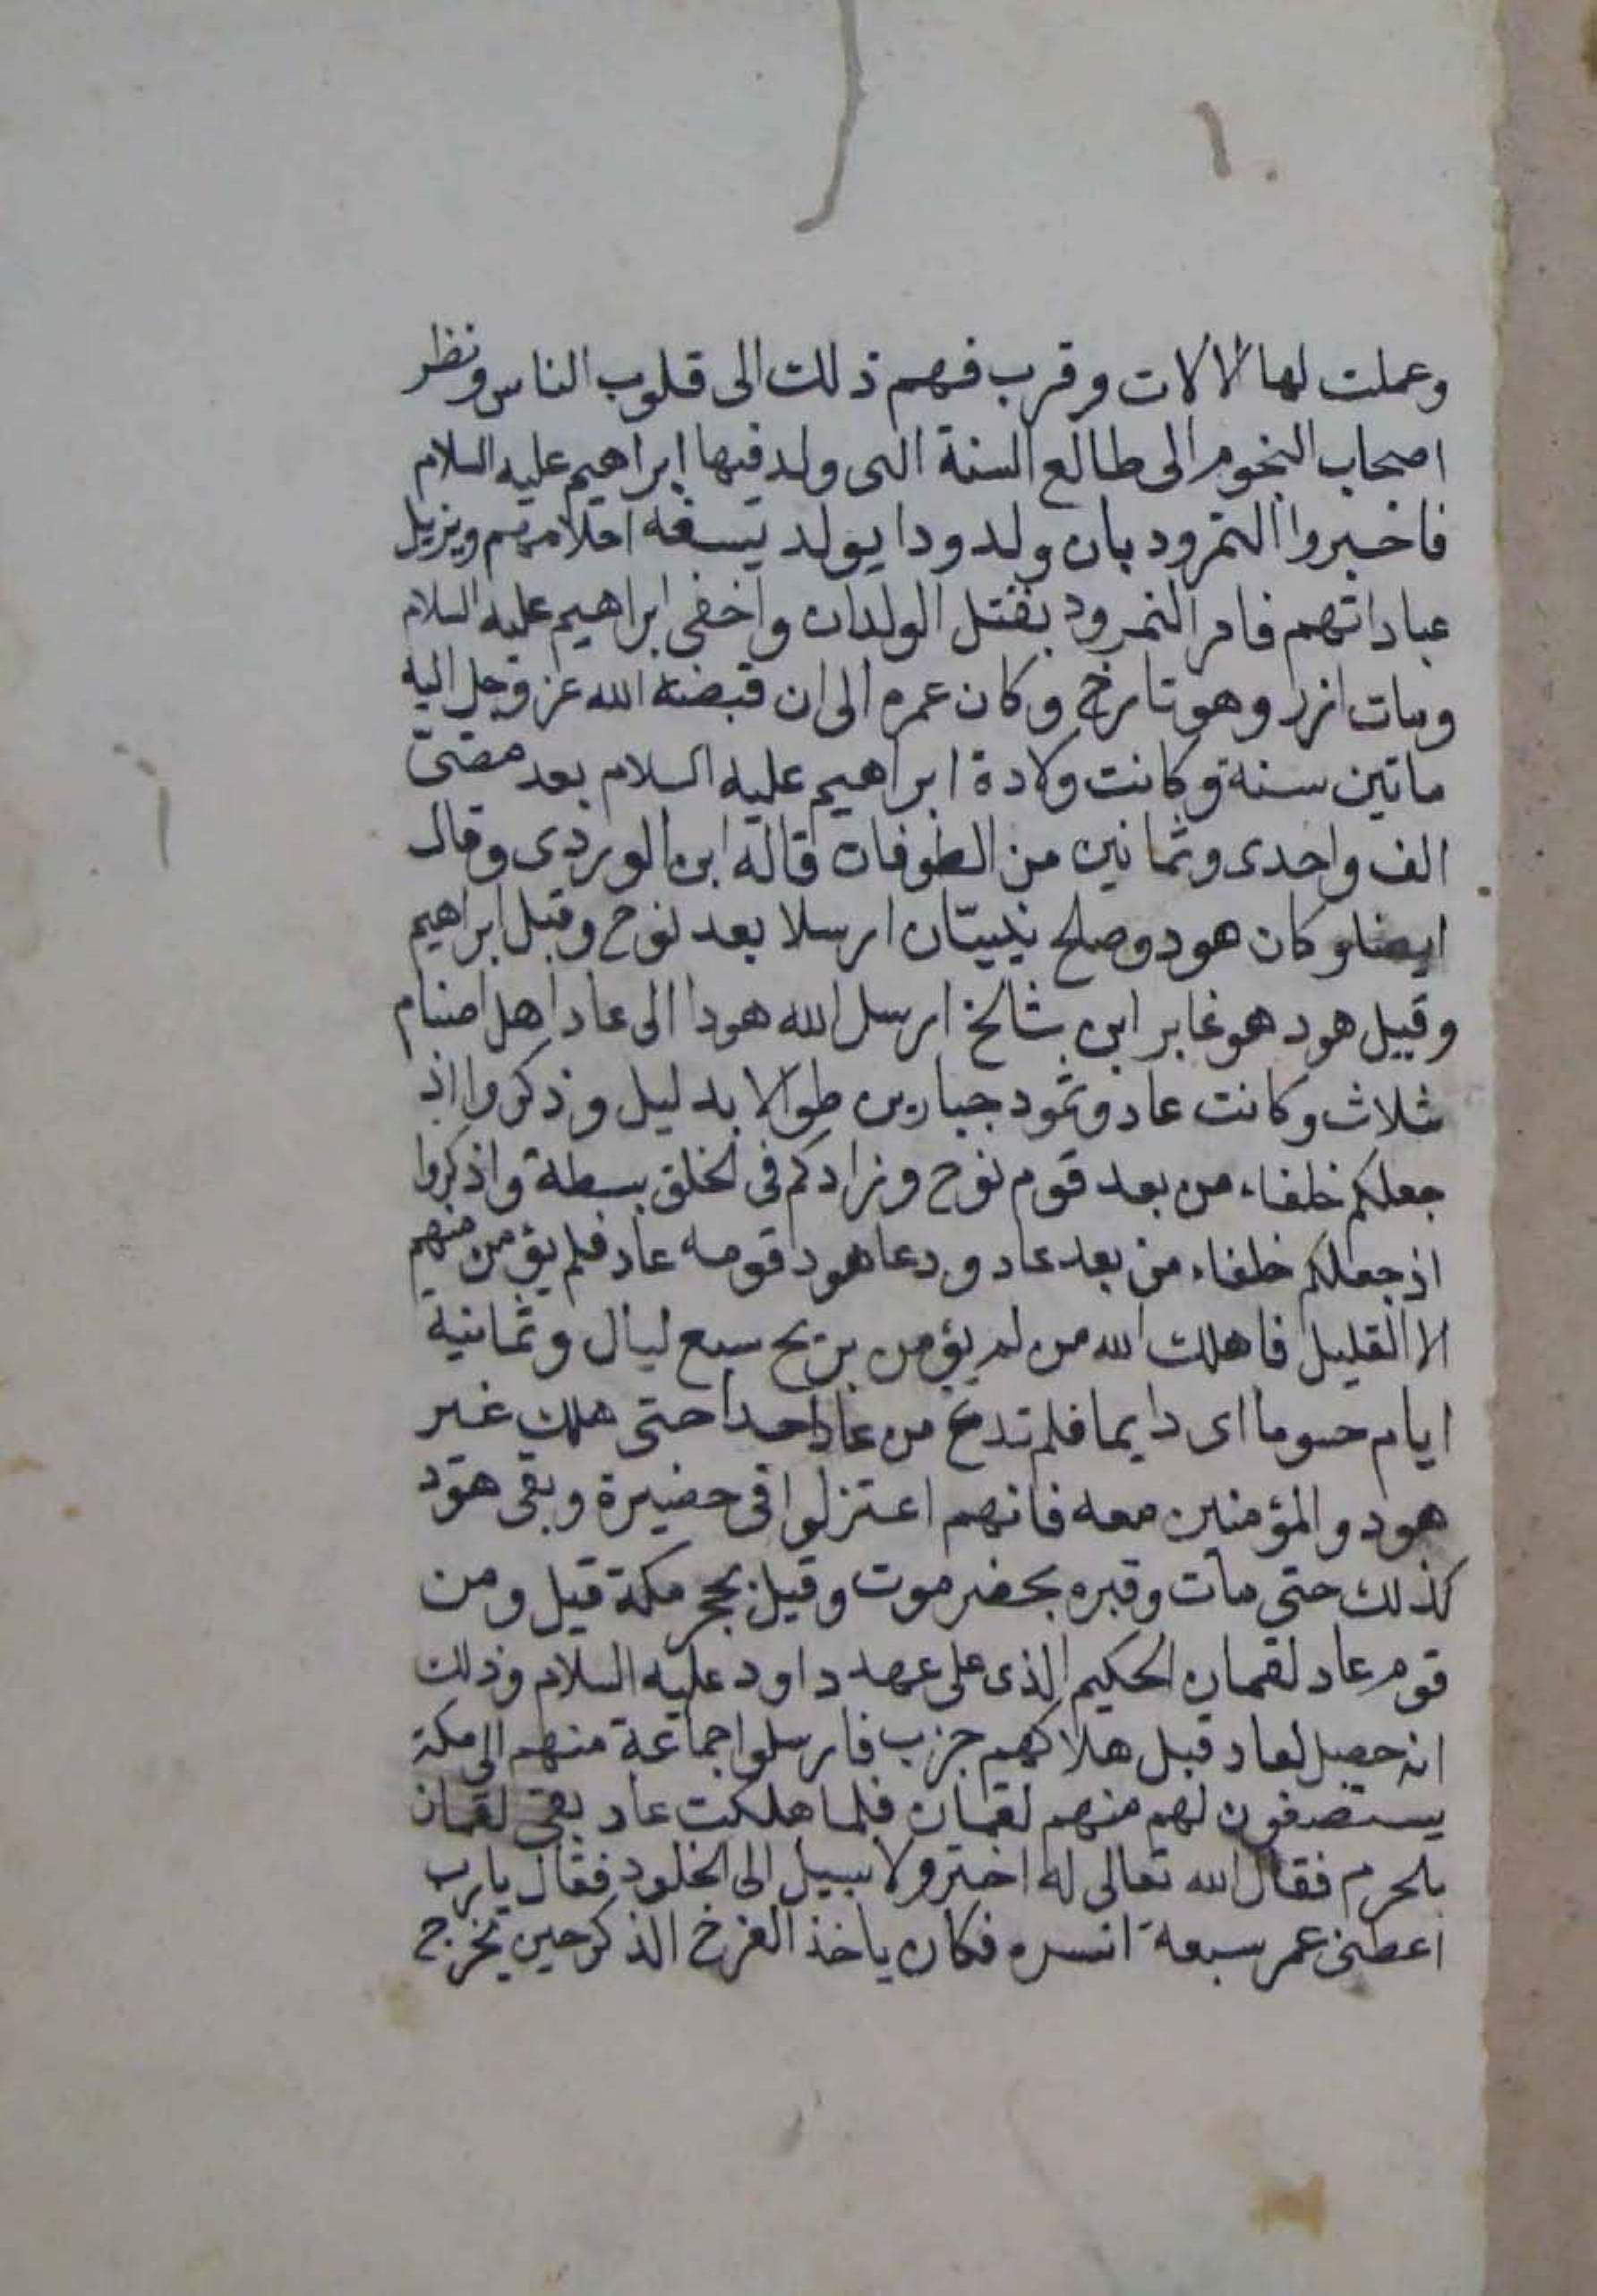 وعملت لها الالات وقرب فهم ذلك الى قلوب الناس ونظر
اصحاب النجوم الى طالع السنة التى ولد فيها ابراهيم عليه السلام
فاخبروا النمرود بان ولدودا يولد يسفه احلامهم ويزيل
عباداتهم فامر النمرود بقتل الولدان واخفى ابراهيم عليه السلام
ومات ازر وهو تارخ وكان عمره الى ان قبضه الله عز وجل اليه
ماتين سنة وكانت ولادة ابراهيم عليه السلام بعد مضى
الف واحدى وثمانين من الطوفان قاله ابن الوردى وقال
ايضا وكان هود وصلح نبيّان ارسلا بعد نوح وقبل ابراهيم
وقيل هود هو غابر ابن شالخ ارسل الله هودا الى عاد اهل اصنام
ثلاث وكانت عاد وثمود جبارين طوالا بدليل وذكروا اذ
جعلكم خلفاء من بعد قوم نوح وزادكم فى الخلق بسطة واذكروا
اذ جعلكم خلفاء من بعد عاد ودعا هود قومه عاد فلم يؤمن منهم
الا القليل فاهلك الله من لم يؤمن بريح سبع ليال وثمانية
ايام حسوما اى دايما فلم تدع من عاد احدا حتى هلك غير
هود والمؤمنين معه فانهم اعتزلوا فى حضيرة وبقى هود
كذلك حتى مات وقبره بحضرموت وقيل بحجر مكة قيل ومن
قوم عاد لقمان الحكيم الذى على عهد داود عليه السلام وذلك
انه حصل لعاد قبل هلاكهم جزب فارسلوا جماعة منهم الى مكة
يستصفون لهم منهم لقمان فلما هلكت عاد بقى لقمان
بلحرم فقال الله تعالى له اختر ولا سبيل الى الخلود فقال يارب
اعطنى عمر سبعة انسره فكان ياخذ الفرخ الذكر حين يخرج